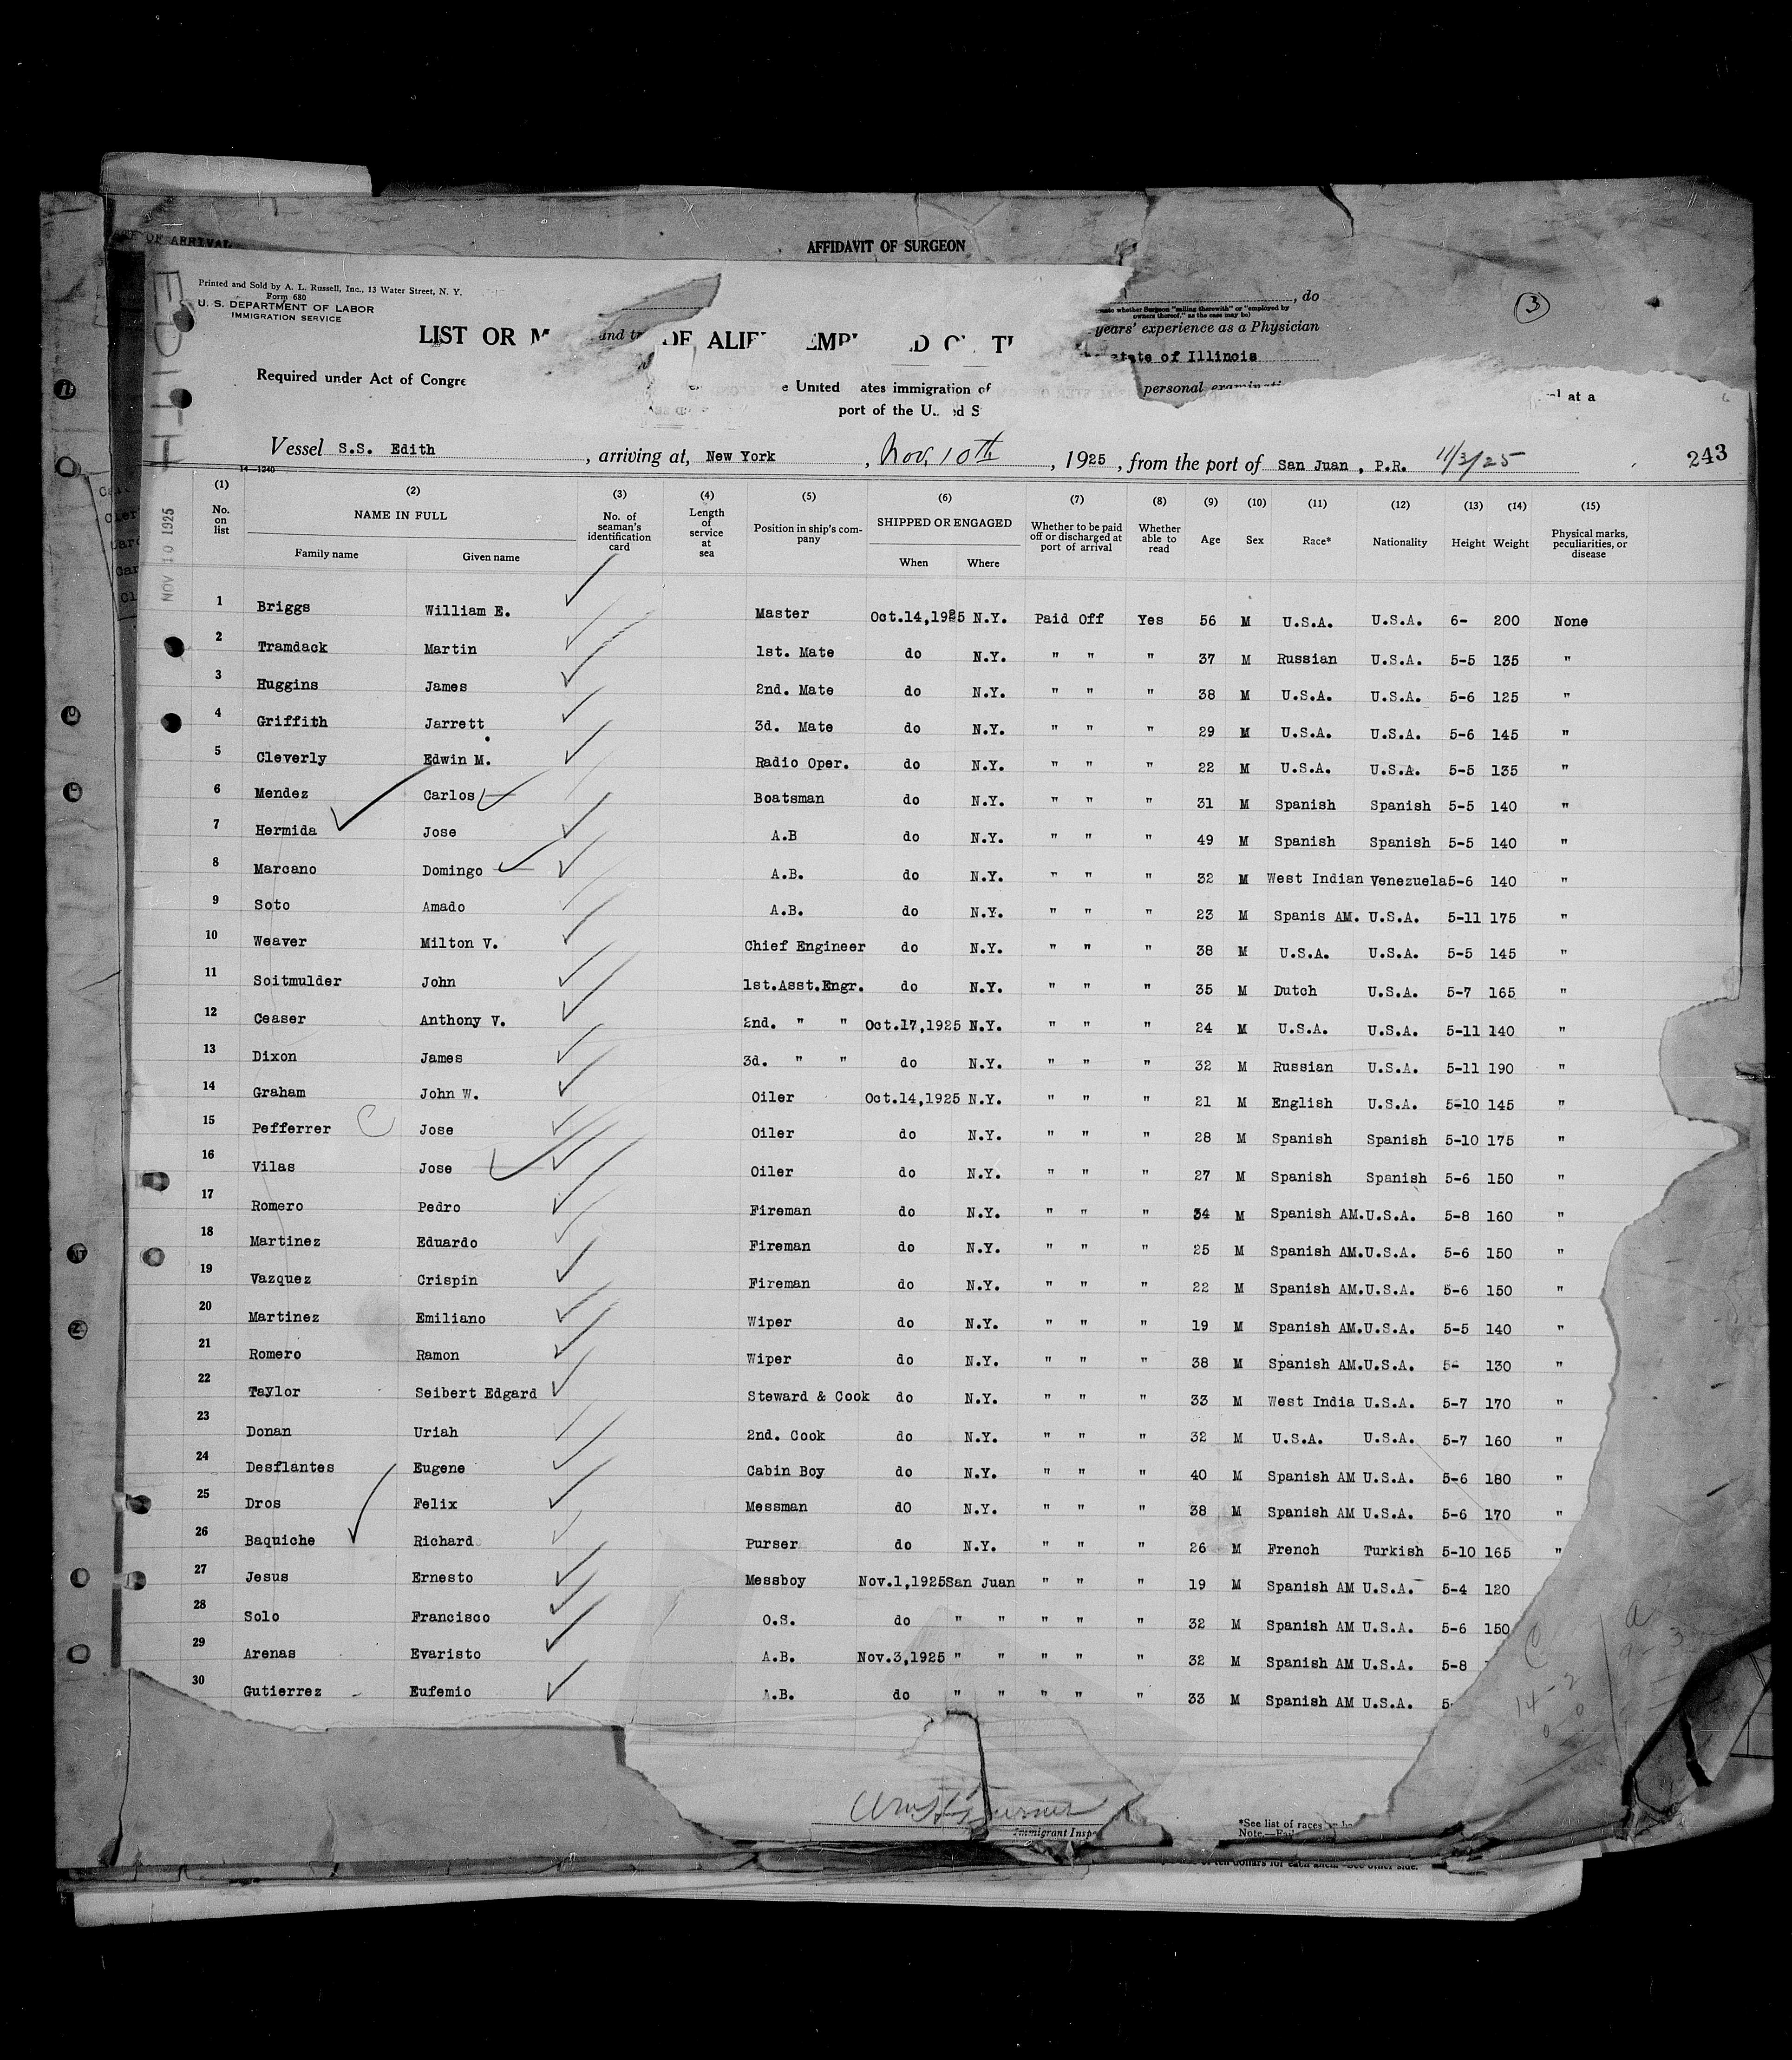 OF ARRIVAL
AFFIDAVIT OF SURGEON
Printed and Sold by A. L. Russell, Inc., 13 Water Street, N. Y.
Form 680
U. S. DEPARTMENT OF LABOR
IMMIGRATION SERVICE
, do
owners thereof," as the case may be)
years' experience as a Physician
state of Illinois
personal
3
LIST OR
and
ALIE
EMP
Required under Act of Congre
e United ates immigration of
at a
port of the U ed S
Vessel S.S. Edith , arriving at, New York , Nov. 10th , 1925 , from the port of San Juan , P.R. 11/3/25
243
14—1240
EDITH
NOV 10 1925
(1) (2) (3) (4) (5) (6) (7) (8) (9) (10) (11) (12) (13) (14) (15)
No. on list NAME IN FULL Family name Given name No. of seaman's identification card Length of service at sea Position in ship's company SHIPPED OR ENGAGED When Where Whether to be paid off or discharged at port of arrival Whether able to read Age Sex Race* Nationality Height Weight Physical marks, peculiarities, or disease
1 Briggs William E. Master Oct.14,1925 N.Y. Paid Off Yes 56 M U.S.A. U.S.A. 6- 200 None
2 Tramdack Martin 1st. Mate do N.Y. " " " 37 M Russian U.S.A. 5-5 135 "
3 Huggins James 2nd. Mate do N.Y. " " " 38 M U.S.A. U.S.A. 5-6 125 "
4 Griffith Jarrett 3d. Mate do N.Y. " " " 29 M U.S.A. U.S.A. 5-6 145 "
5 Cleverly Edwin M. Radio Oper. do N.Y. " " " 22 M U.S.A. U.S.A. 5-5 135 "
6 Mendez Carlos Boatsman do N.Y. " " " 31 M Spanish Spanish 5-5 140 "
7 Hermida Jose A.B do N.Y. " " " 49 M Spanish Spanish 5-5 140 "
8 Marcano Domingo A.B. do N.Y. " " " 32 M West Indian Venezuela 5-6 140 "
9 Soto Amado A.B. do N.Y. " " " 23 M Spanis AM. U.S.A. 5-11 175 "
10 Weaver Milton V. Chief Engineer do N.Y. " " " 38 M U.S.A. U.S.A. 5-5 145 "
11 Soitmulder John 1st.Asst.Engr. do N.Y. " " " 35 M Dutch U.S.A. 5-7 165 "
12 Ceaser Anthony V. 2nd. " " Oct.17,1925 N.Y. " " " 24 M U.S.A. U.S.A. 5-11 140 "
13 Dixon James 3d. " " do N.Y. " " " 32 M Russian U.S.A. 5-11 190 "
14 Graham John W. Oiler Oct.14,1925 N.Y. " " " 21 M English U.S.A. 5-10 145 "
15 Pefferrer C Jose Oiler do N.Y. " " " 28 M Spanish Spanish 5-10 175 "
16 Vilas Jose Oiler do N.Y. " " " 27 M Spanish Spanish 5-6 150 "
17 Romero Pedro Fireman do N.Y. " " " 34 M Spanish AM. U.S.A. 5-8 160 "
18 Martinez Eduardo Fireman do N.Y. " " " 25 M Spanish AM. U.S.A. 5-6 150 "
19 Vazquez Crispin Fireman do N.Y. " " " 22 M Spanish AM. U.S.A. 5-6 150 "
20 Martinez Emiliano Wiper do N.Y. " " " 19 M Spanish AM. U.S.A. 5-5 140 "
21 Romero Ramon Wiper do N.Y. " " " 38 M Spanish AM. U.S.A. 5- 130 "
22 Taylor Seibert Edgard Steward & Cook do N.Y. " " " 33 M West India U.S.A. 5-7 170 "
23 Donan Uriah 2nd. Cook do N.Y. " " " 32 M U.S.A. U.S.A. 5-7 160 "
24 Desflantes Eugene Cabin Boy do N.Y. " " " 40 M Spanish AM U.S.A. 5-6 180 "
25 Dros Felix Messman dO N.Y. " " " 38 M Spanish AM U.S.A. 5-6 170 "
26 Baquiche Richard Purser do N.Y. " " " 26 M French Turkish 5-10 165 "
27 Jesus Ernesto Messboy Nov.1,1925 San Juan " " " 19 M Spanish AM U.S.A. 5-4 120
28 Solo Francisco O.S. do " " " " " 32 M Spanish AM U.S.A. 5-6 150
29 Arenas Evaristo A.B. Nov.3,1925 " " " " " 32 M Spanish AM U.S.A. 5-8
30 Gutierrez Eufemio A.B. do " " " " " 33 M Spanish AM U.S.A. 5-
14-2
Immigrant Insp
*See list of races
Note.—Fail
of ten dollars for each alien. See other side.